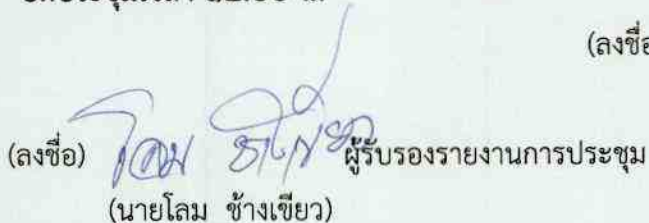 (ลงชื่อ
(ลงชื่อ) โลม ช้างเขียว ผู้รับรองรายงานการประชุม
(นายโลม ช้างเขียว)